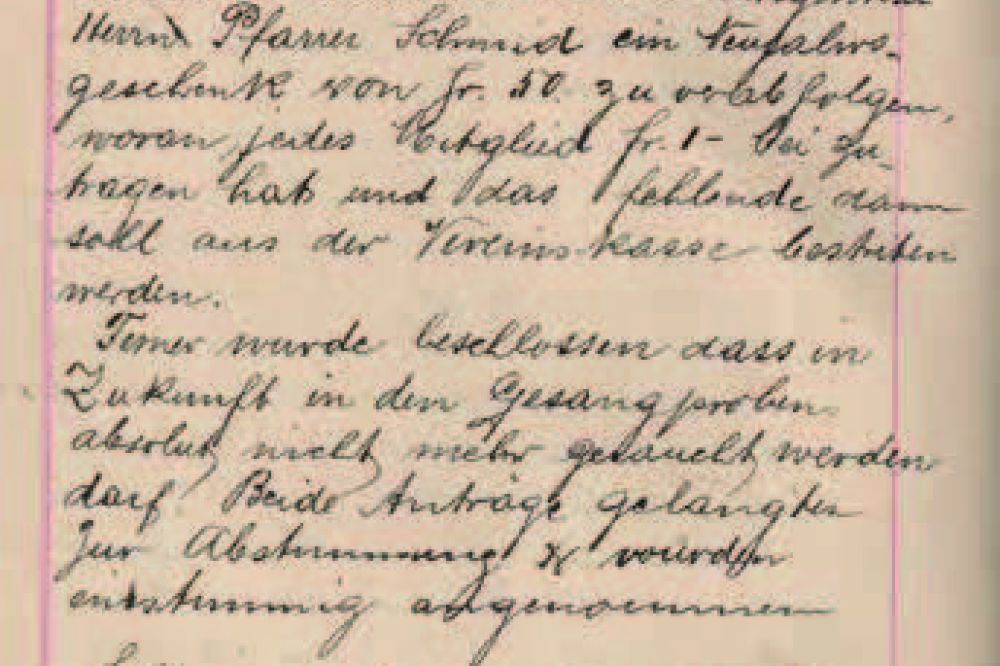 Herrn Pfarrer Schmid ein Neujahrs-
geschenk von fr. 50. zu verabfolgen,
woran jedes Mitglied fr. 1- bei zu-
tragen hat und das fehlende dann
soll aus der Vereinskasse bestriten
werden.
Ferner wurde beschlossen dass in
Zukunft in den Gesangproben
absolut nicht mehr geraucht werden
darf. Beide Anträge gelangten
zur Abstimmung & wurden
einstimmig angenommen